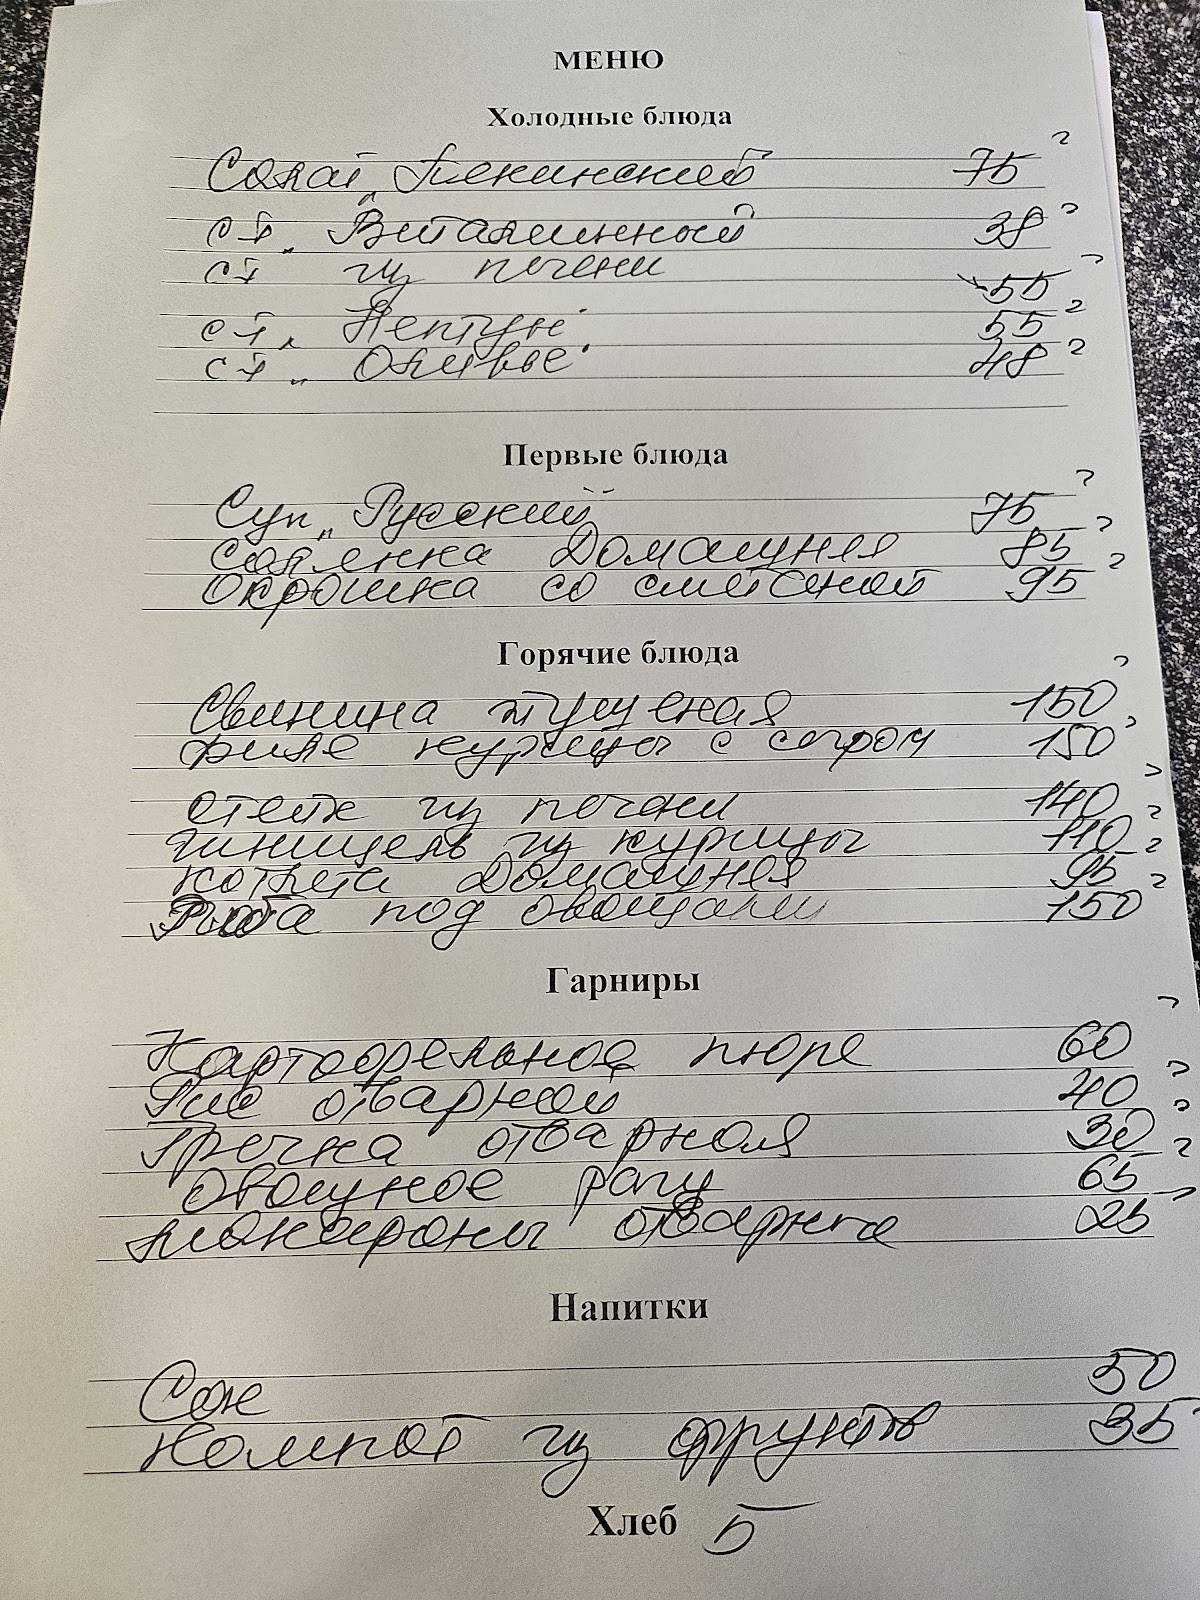 МЕНЮ
Холодные блюда
Салат „Пекинский 75
с-т „ Витаминный 38
с-т из печени 55
с-т „ Нептун" 55
с-т „ Оливье" 48
Первые блюда
Суп „ Русский 75
Солянка Домашняя 85
Окрошка со сметаной 95
Горячие блюда
Свинина тушеная 150
Филе курицы с сыром 150
стейк из печени 140
шницель из курицы 110
котлета Домашняя 95
Рыба под овощами 150
Гарниры
Картофельное пюре 60
Рис отварной 40
Гречка отварная 30
Овощное рагу 65
Макароны отварные 25
Напитки
Сок 50
Компот из фруктов 35
Хлеб 5